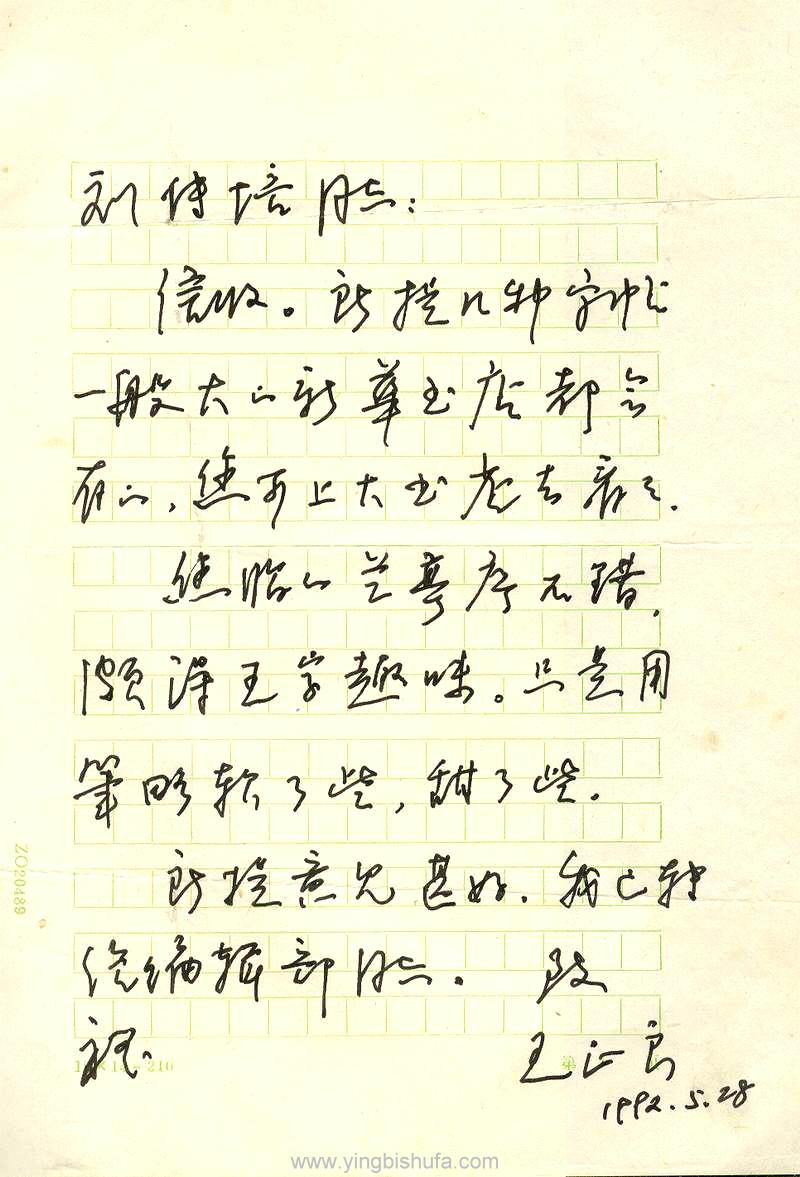 刘传培同志：
信收。所提几种字帖
一般大的新华书店都会
有的，您可上大书店去看看。
您临的兰亭序不错，
颇得王字趣味。只是用
笔略软了些，甜了些。
所提意见甚好，我已转
给编辑部同志。 致
礼
王正良
1992.5.28
ZO20489
第
www.yingbishufa.com